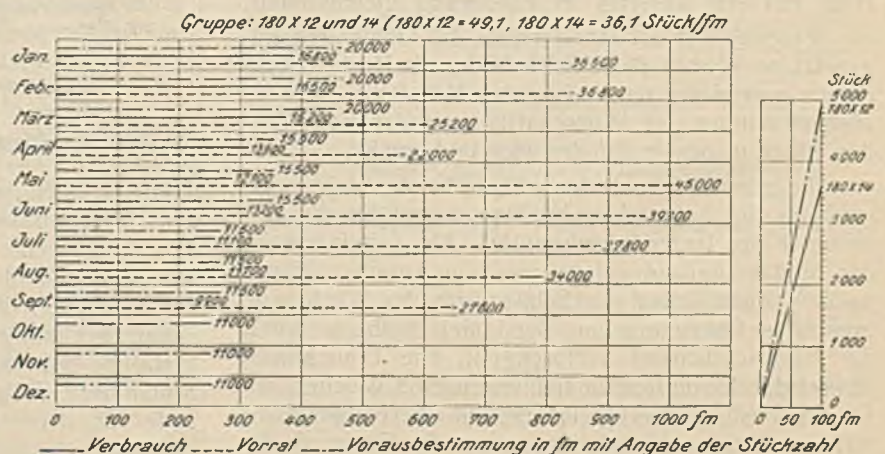 Gruppe: 180 X 12 und 14 (180 X 12 = 49,1, 180 X 14 = 36,1 Stück/fm
Jan.
20000
16800
36500
Febr.
20000
16500
36800
März
20000
16200
25200
April
15500
22000
Mai
15500
45000
Juni
15500
Juli
11600
11100
Aug.
11600
34000
Sept.
11600
27600
Okt.
11000
Nov.
11000
Dez.
11000
0 100 200 300 400 500 600 700 800 900 1000 fm
Stück
5000
180X12
4000
180X14
3000
2000
1000
0
0 50 100 fm
Verbrauch Vorrat Vorausbestimmung in fm mit Angabe der Stückzahl